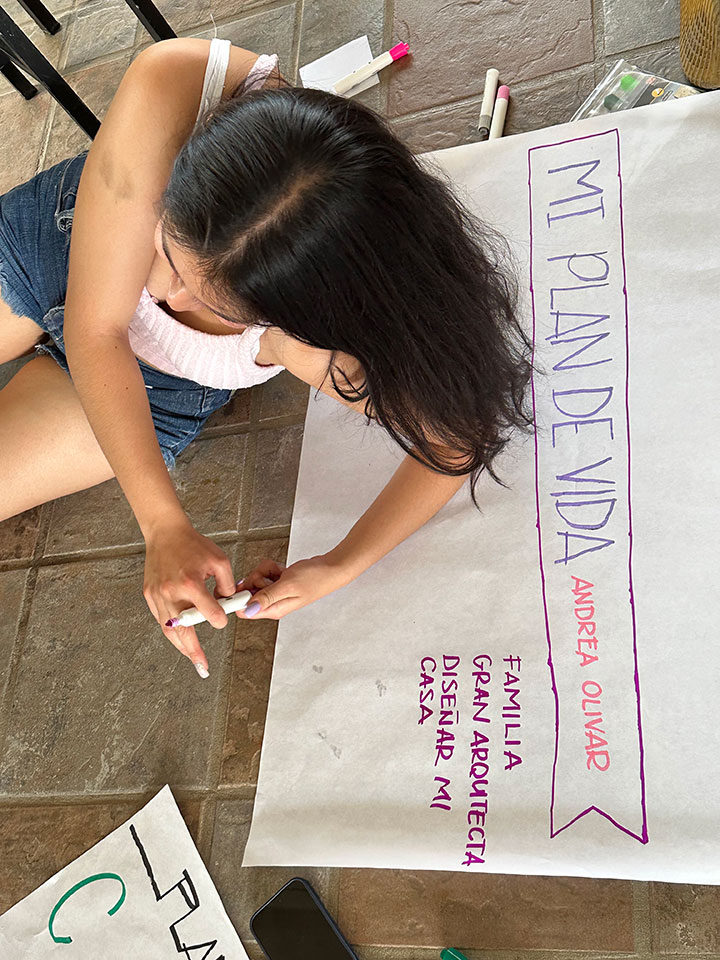 MI PLAN DE VIDA ANDREA OLIVAR
FAMILIA
GRAN ARQUTECTA
DISEÑAR MI
CASA
PLA
C